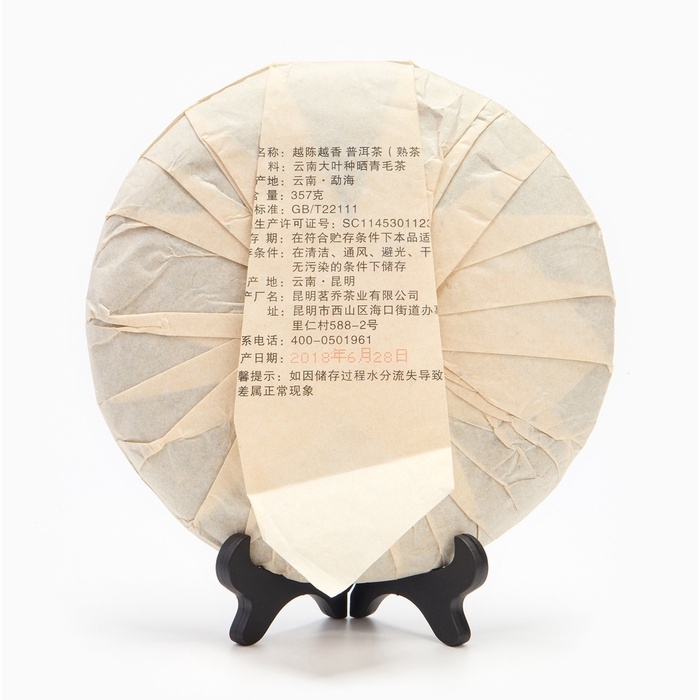 名称：越陈越香 普洱茶（熟茶
料：云南大叶种晒青毛茶
产地：云南·勐海
含 量：357克
标准：GB/T22111
生产许可证号：SC1145301123
存 期：在符合贮存条件下本品适
存条件：在清洁、通风、避光、干
无污染的条件下储存
产 地：云南·昆明
产厂名：昆明茗乔茶业有限公司
址：昆明市西山区海口街道办事
里仁村588-2号
系电话：400-0501961
产日期：2018年6月28日
馨提示：如因储存过程水分流失导致
差属正常现象